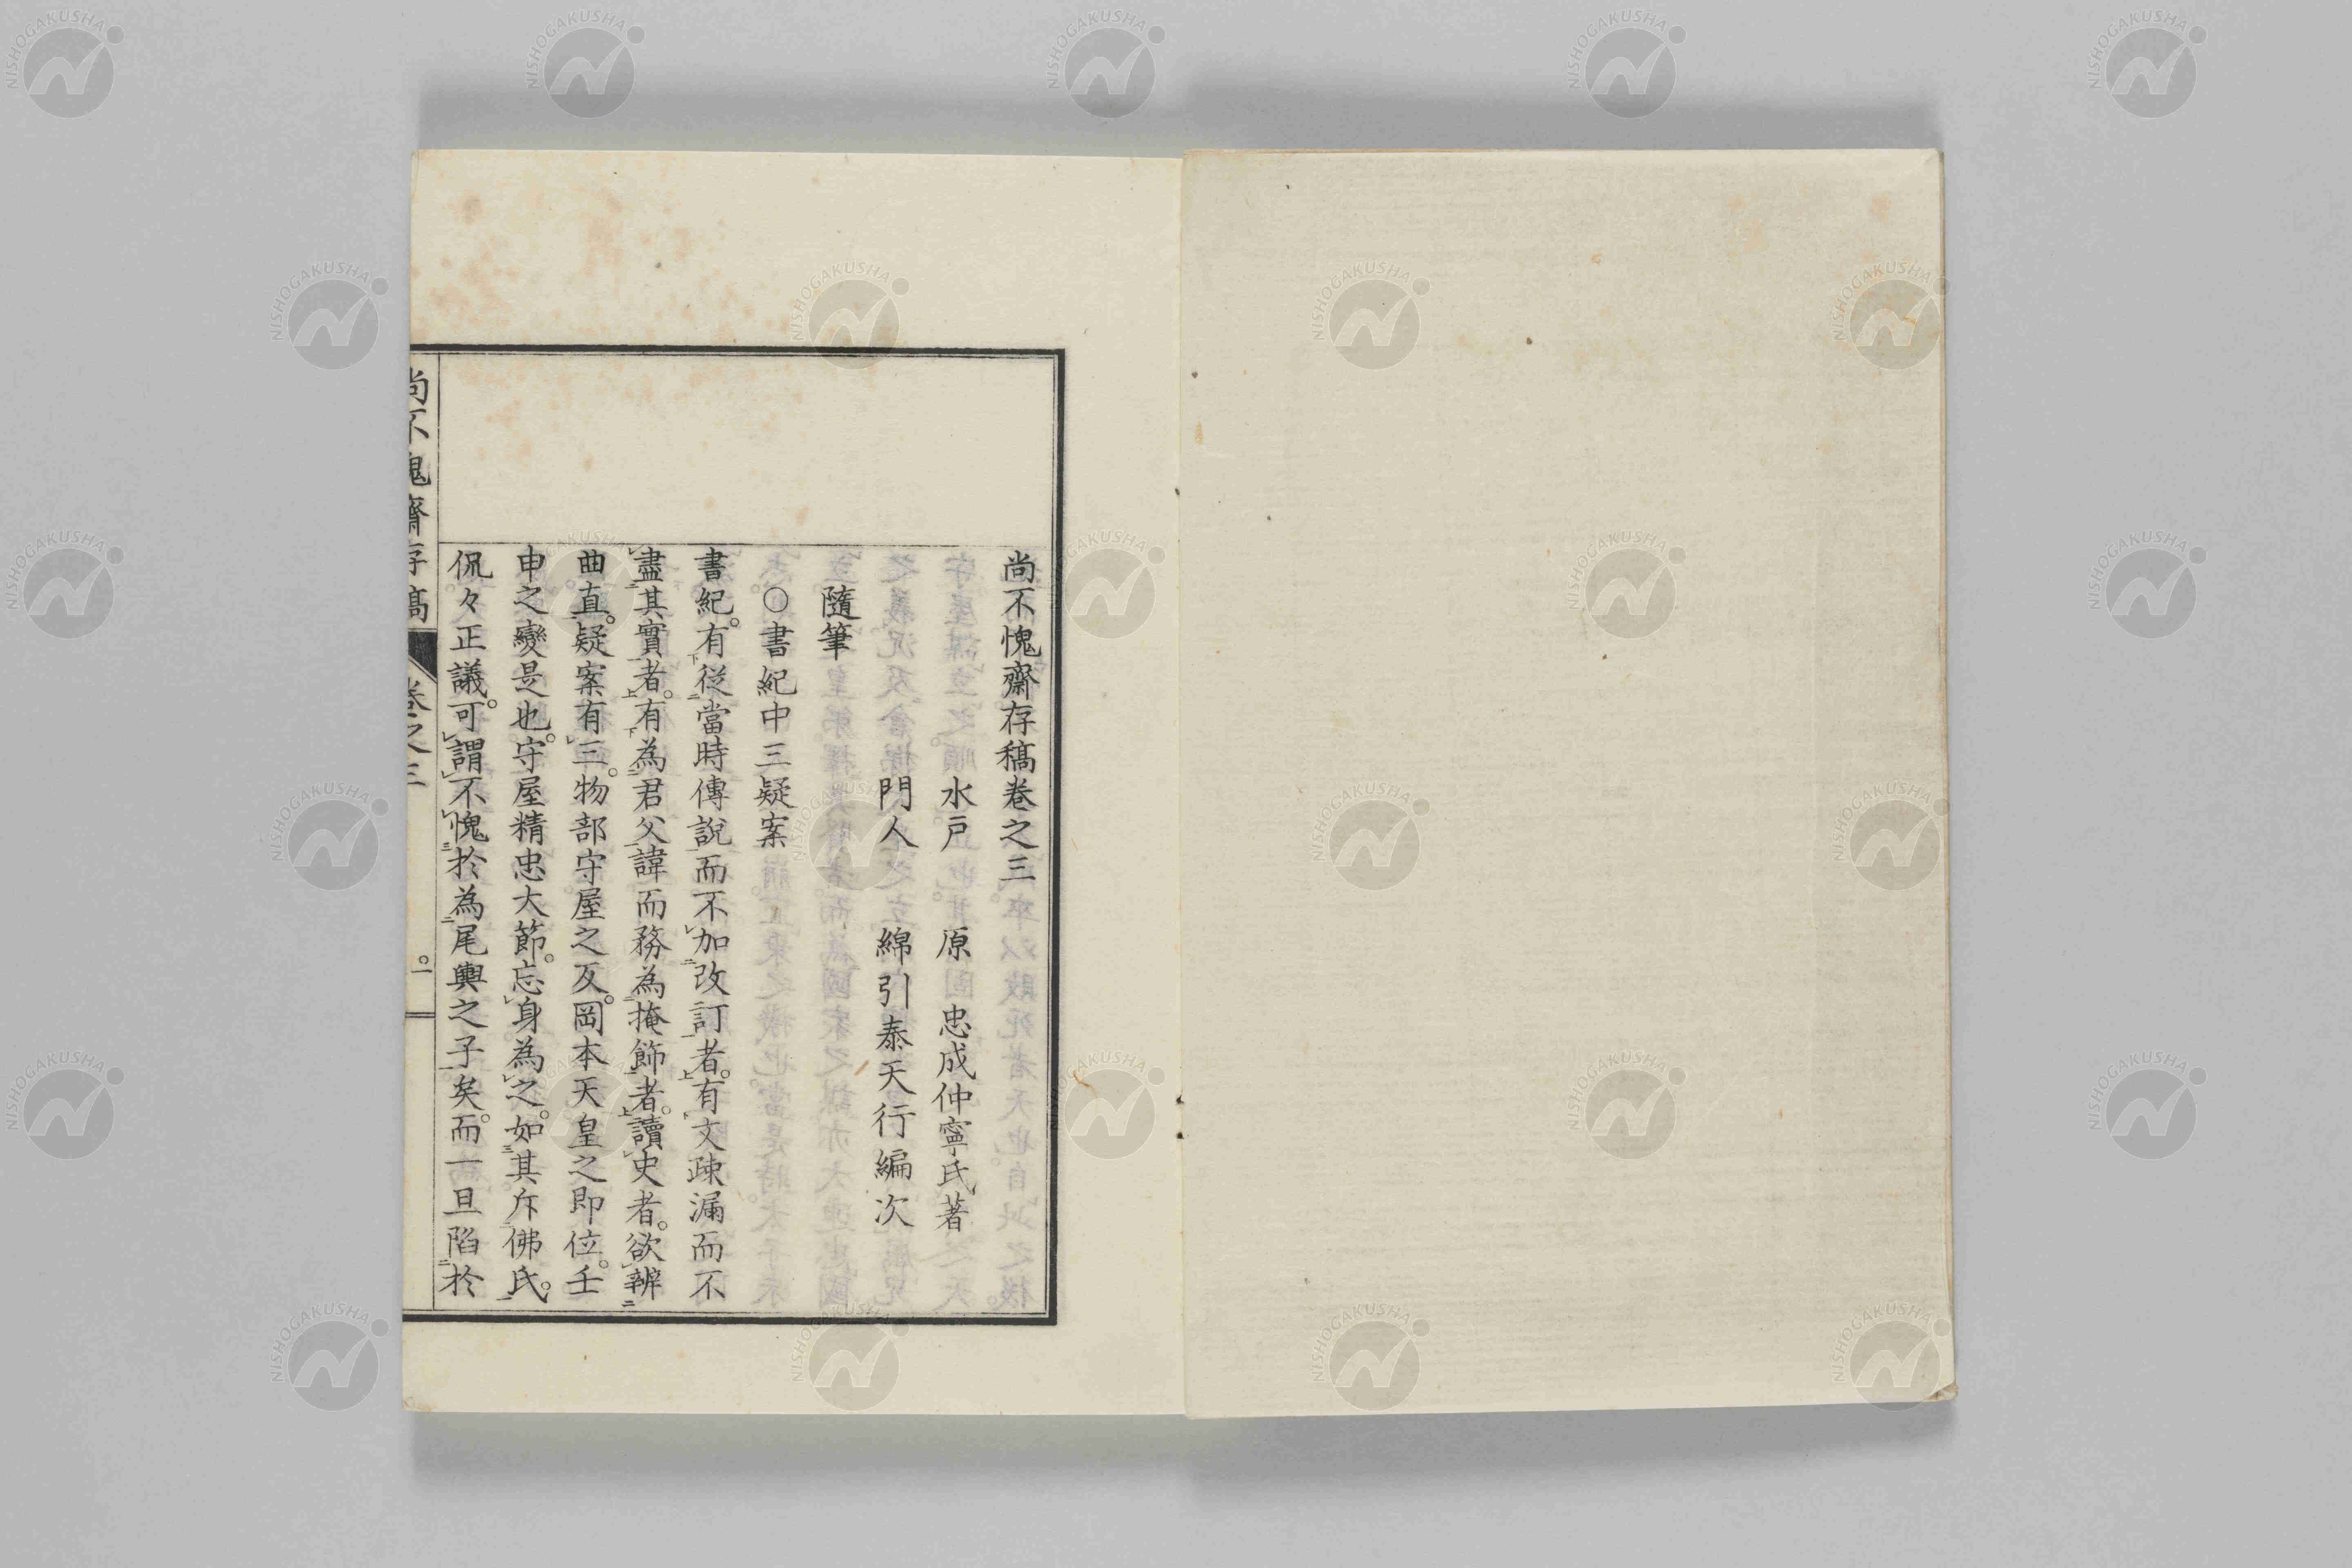 尚不愧齋存稿卷之三
水戸 原 忠成仲寧氏著
門人 綿引泰天行編次
隨筆
○書紀中三疑案
書紀。有從當時傳說而不加改訂者。有文疎漏而不
盡其實者。有為君父諱而務為掩飾者。讀史者。欲辨
曲直。疑案有三。物部守屋之反。岡本天皇之即位。壬
申之變是也。守屋精忠大節。忘身為之。如其斥佛氏。
侃々正議。可謂不愧於為尾輿之子矣。而一旦陷於
尚不愧齋存稿 卷之三 一
NISHOGAKUSHA